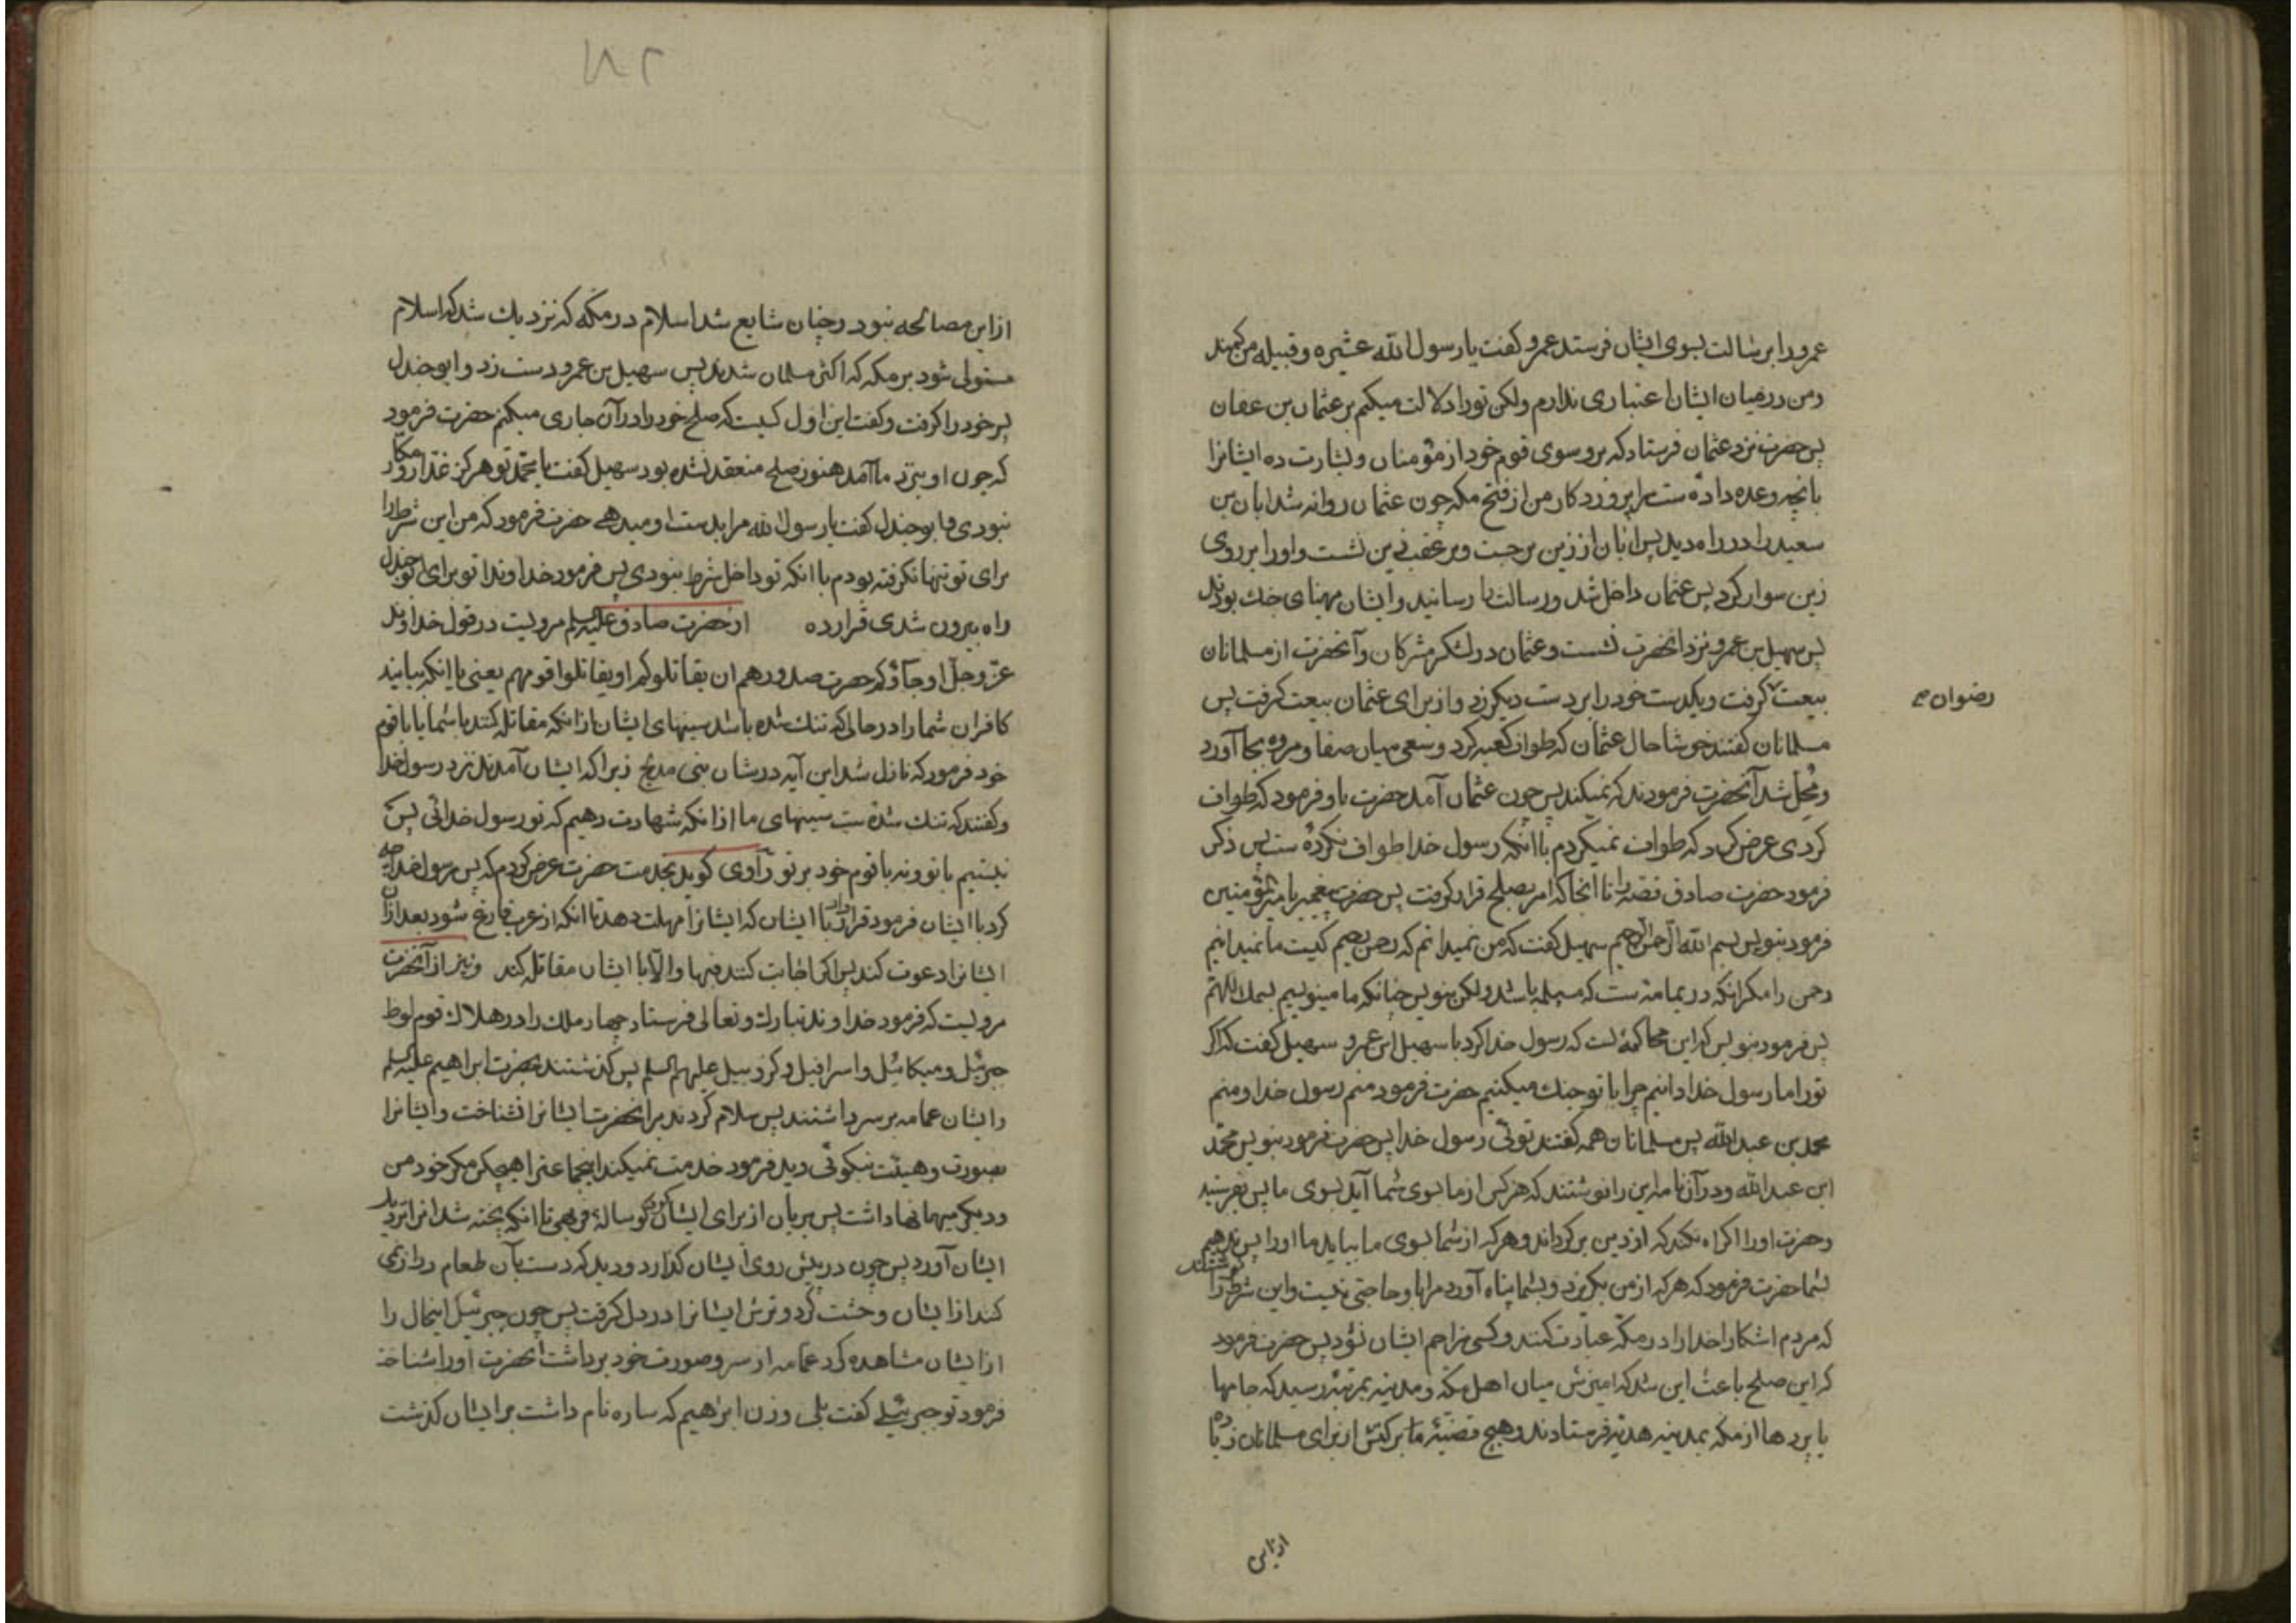 عمرو را برسالت بسوی ایشان فرستد عمرو گفت یا رسول الله عشیره و قبیله من کمند
و من در میان ایشان اعتباری ندارم ولکن تو را دلالت میکنم بر عثمان بن عفان
پس حضرت نزد عثمان فرستاد که برو سوی قوم خود از مؤمنان و بشارت ده ایشانرا
بانچه وعده داده ست مرا پروردکار من از فتح مکه چون عثمان روانه شد ابان بن
سعید را در راه دید پس ابان از زین برجست و بر عقب زین نشست و او را بر روی
زین سوار کرد پس عثمان داخل شد و رسالت را رسانید و ایشان مهیای جنك بودند
پس سهیل بن عمرو نزد انحضرت نشست و عثمان در لشکر مشرکان و آنحضرت از مسلمانان
بیعت گرفت و یکدست خود را بر دست دیکر زد و از برای عثمان بیعت کرفت پس
رضوان
مسلمانان کفتند خوشا حال عثمان که طواف کعبه کرد و سعی میان صفا و مروه بجا آورد
و محل شد آنحضرت فرمودند که نمیکند پس چون عثمان آمد حضرت باو فرمود که طواف
کردی عرض کرد که طواف نمیکردم با انکه رسول خدا طواف نکرده ست پس ذکر
فرمود حضرت صادق قصه را تا انجا که امر بصلح قرار کرفت پس حضرت پیغمبر بامیرالمؤمنین
فرمود بنویس بسم الله الرحمن الرحیم سهیل کفت که من نمیدانم که رحمن رحیم کیست ما نمیدانیم
رحمن را مکر انکه در یمامه ست که مسیلمه باشد ولکن بنویس چنانکه ما مینویسیم بسمك اللهم
پس فرمود بنویس که این محاکمهٔ است که رسول خدا کرد با سهیل ابن عمرو سهیل کفت که اکر
تو را ما رسول خدا دانیم چرا با تو جنك میکنیم حضرت فرمود منم رسول خدا و منم
محمد بن عبد الله پس مسلمانان همه کفتند توئی رسول خدا پس حضرت فرمود بنویس محمد
ابن عبد الله و در آن نامه این را نوشتند که هر کس از ما بسوی شما آید بسوی ما پس بفرستید
و حضرت او را اکراه نکند که از دین برکرداند و هر که از شما بسوی ما بیاید ما او را پس ندهیم
بشما حضرت فرمود که هر که از من بکریزد و بشما پناه آورد مرا باو حاجتی نیست و این شرط را نوشتند
که مردم اشکارا خدا را در مکه عبادت کنند و کسی مزاحم ایشان نشود پس حضرت فرمود
که این صلح باعث این شد که امیزش میان اهل مکه و مدینه بمرتبهٔ رسید که جامها
یا بردها از مکه بمدینه هدیه فرستادند و هیچ قضیهٔ با برکتش از برای مسلمانان زیاده
ازاین
۱۸۲
از این مصالحه نبود و چنان شایع شد اسلام در مکه که نزدیك شد که اسلام
مستولی شود بر مکه که اکثر مسلمان شدند پس سهیل بن عمرو دست زد و ابو جندل
پسر خود را کرفت و کفت این اول کسیست که صلح خود را در آن جاری میکنم حضرت فرمود
که چون او بنزد ما آمد هنوز صلح منعقد نشده بود سهیل کفت یا محمد تو هرکز غدار و مکار
نبودی و ابو جندل کفت یا رسول الله مرا بدست او میدهی حضرت فرمود که من این شرط را
برای تو تنها نکرفته بودم با انکه تو داخل شرط نبودی پس فرمود خداوندا تو برای ابو جندل
راه بیرون شدی قرار ده از حضرت صادق علیه السلم مرویست در قول خداوند
عز و جل او جاؤکم حصرت صدورهم ان یقاتلوکم او یقاتلوا قومهم یعنی یا انکه بیایند
کافران شما را در حالی که تنك شده باشد سینهای ایشان از انکه مقاتله کنند با شما یا با قوم
خود فرمود که نازل شد این آیه در شان بنی مدلج زیرا که ایشان آمدند نزد رسول خدا
و کفتند که تنك شده ست سینهای ما از انکه شهادت دهیم که تو رسول خدائی پس
نیستیم با تو و نه با قوم خود بر تو راوی کوید بخدمت حضرت عرض کردم که پس رسول خدا چه
کرد با ایشان فرمود قرار داد با ایشان که ایشانرا مهلت دهد تا انکه از عرب فارغ شود بعد ازان
ایشانرا دعوت کند پس اکر اجابت کنند فبها و الا با ایشان مقاتله کند و نیز از آنحضرت
مرویست که فرمود خداوند تبارك و تعالی فرستاد چهار ملك را در هلاك قوم لوط
جبرئیل و میکائیل و اسرافیل و کروبیل علیهم السلم پس کذشتند بحضرت ابراهیم علیه السلم
و ایشان عمامه بر سر داشتند پس سلام کردند بر انحضرت ایشانرا نشناخت و ایشانرا
بصورت و هیئت نیکوئی دید فرمود خدمت نمیکند اینجماعترا هیچکس مکر خود من
و در یکر میهمانها داشت پس بریان از برای ایشان کرد کوسالهٔ فربهی تا انکه پخته شد انرا نزد
ایشان آورد پس چون در پیش روی ایشان کذارد و دید که دست بآن طعام درازنمی
کنند از ایشان وحشت کرد و ترس ایشانرا در دل کرفت پس چون جبرئیل اینحال را
از ایشان مشاهده کرد عمامه از سر و صورت خود برداشت انحضرت او را شناخت
فرمود تو جبرئیلی کفت بلی و زن ابراهیم که ساره نام داشت بر ایشان کذشت